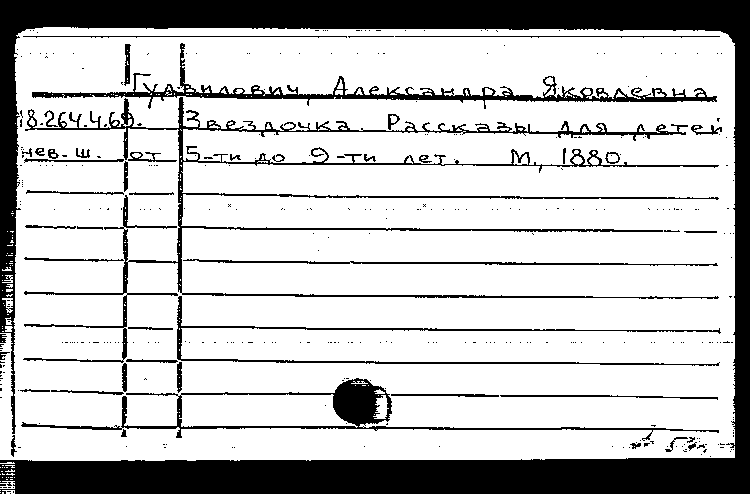 Гудвилович, Александра Яковлевна
18.264.4.69. Звездочка. Рассказы для детей
нев. ш. от 5-ти до 9-ти лет. М., 1880.